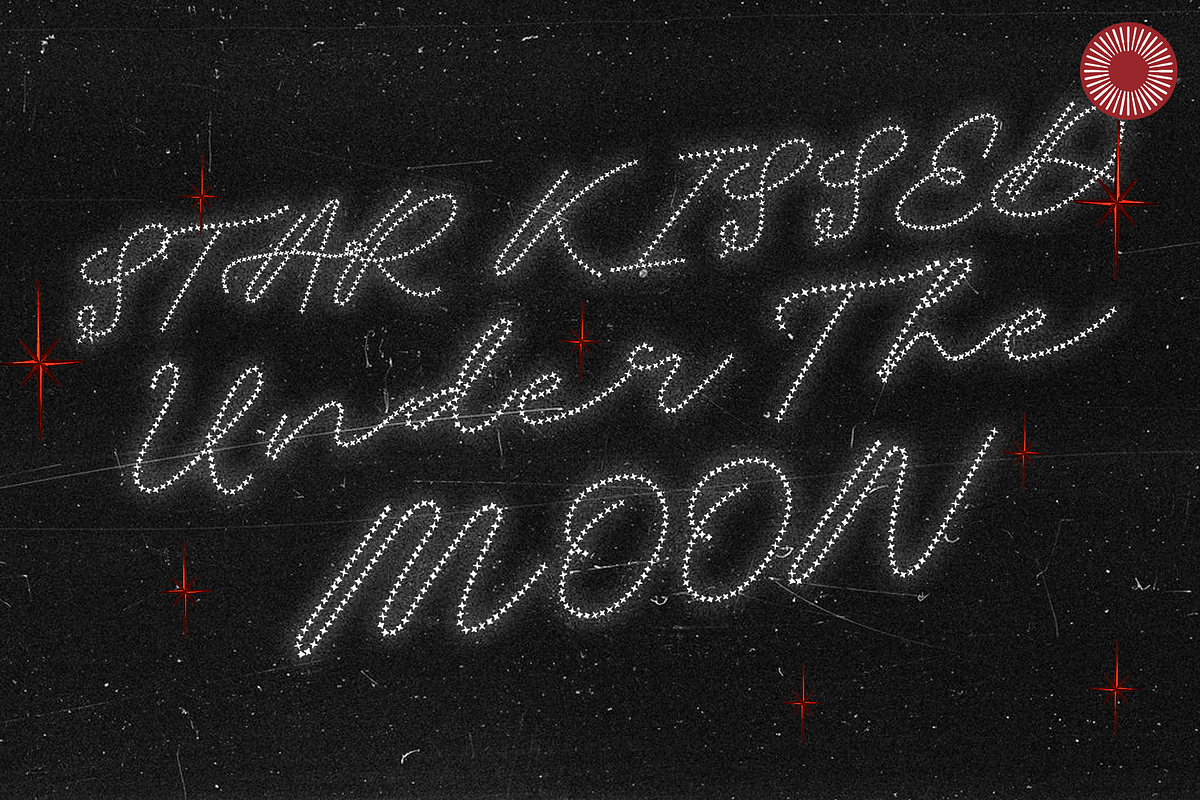 STAR KISSED
Under The
MOON